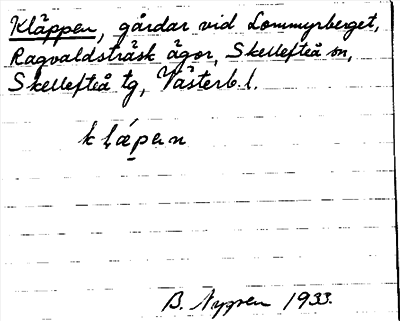 Kläppen, gårdar vid Lommyrberget,
Ragvaldsträsk ägor, Skellefteå sn,
Skellefteå tg, Västerb. l.
B. Nygren 1933.